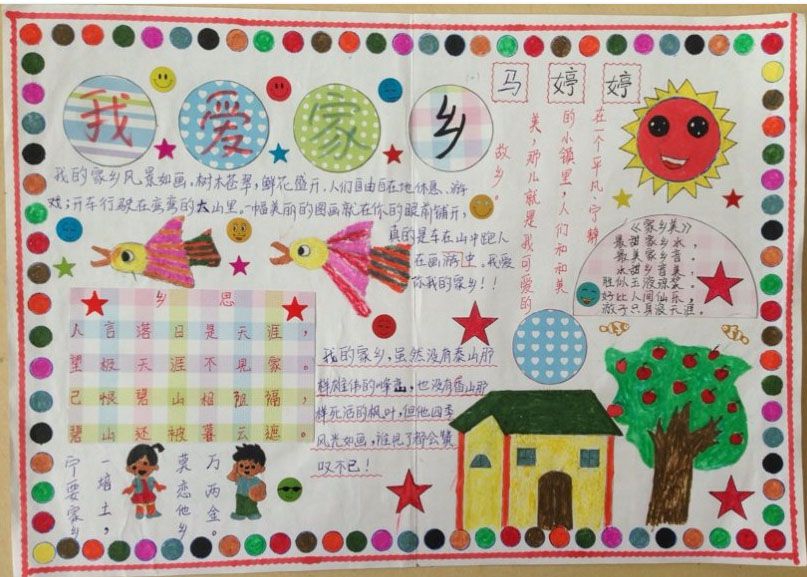 我爱家乡
马婷婷
在一个平凡、宁静
的小镇里,人们和和美
美,那儿就是我可爱的
故乡。
我的家乡风景如画,树木苍翠,鲜花盛开,人们自由自在地休息、游
戏;开车行驶在的大山里。一幅美丽的图画就在你的眼前铺开,
真的是车在山中跑人
在画游。我爱
你我的家乡!!
《家乡美》
最甜家乡水,
最美家乡音。
水甜乡音美,
胜似玉液琼浆。
好比人间仙乐,
游子只身浪天涯。
乡思
人言落日是天涯,
望极天涯不见家。
己恨碧山相阻隔,
碧山还被暮云遮。
我的家乡,虽然没有泰山那
样雄伟的峰峦,也没有香山那
样死活的枫叶,但他四季
风光如画,谁见了都会赞
叹不已!
宁要家乡
一培土,
莫恋他乡
万两金。